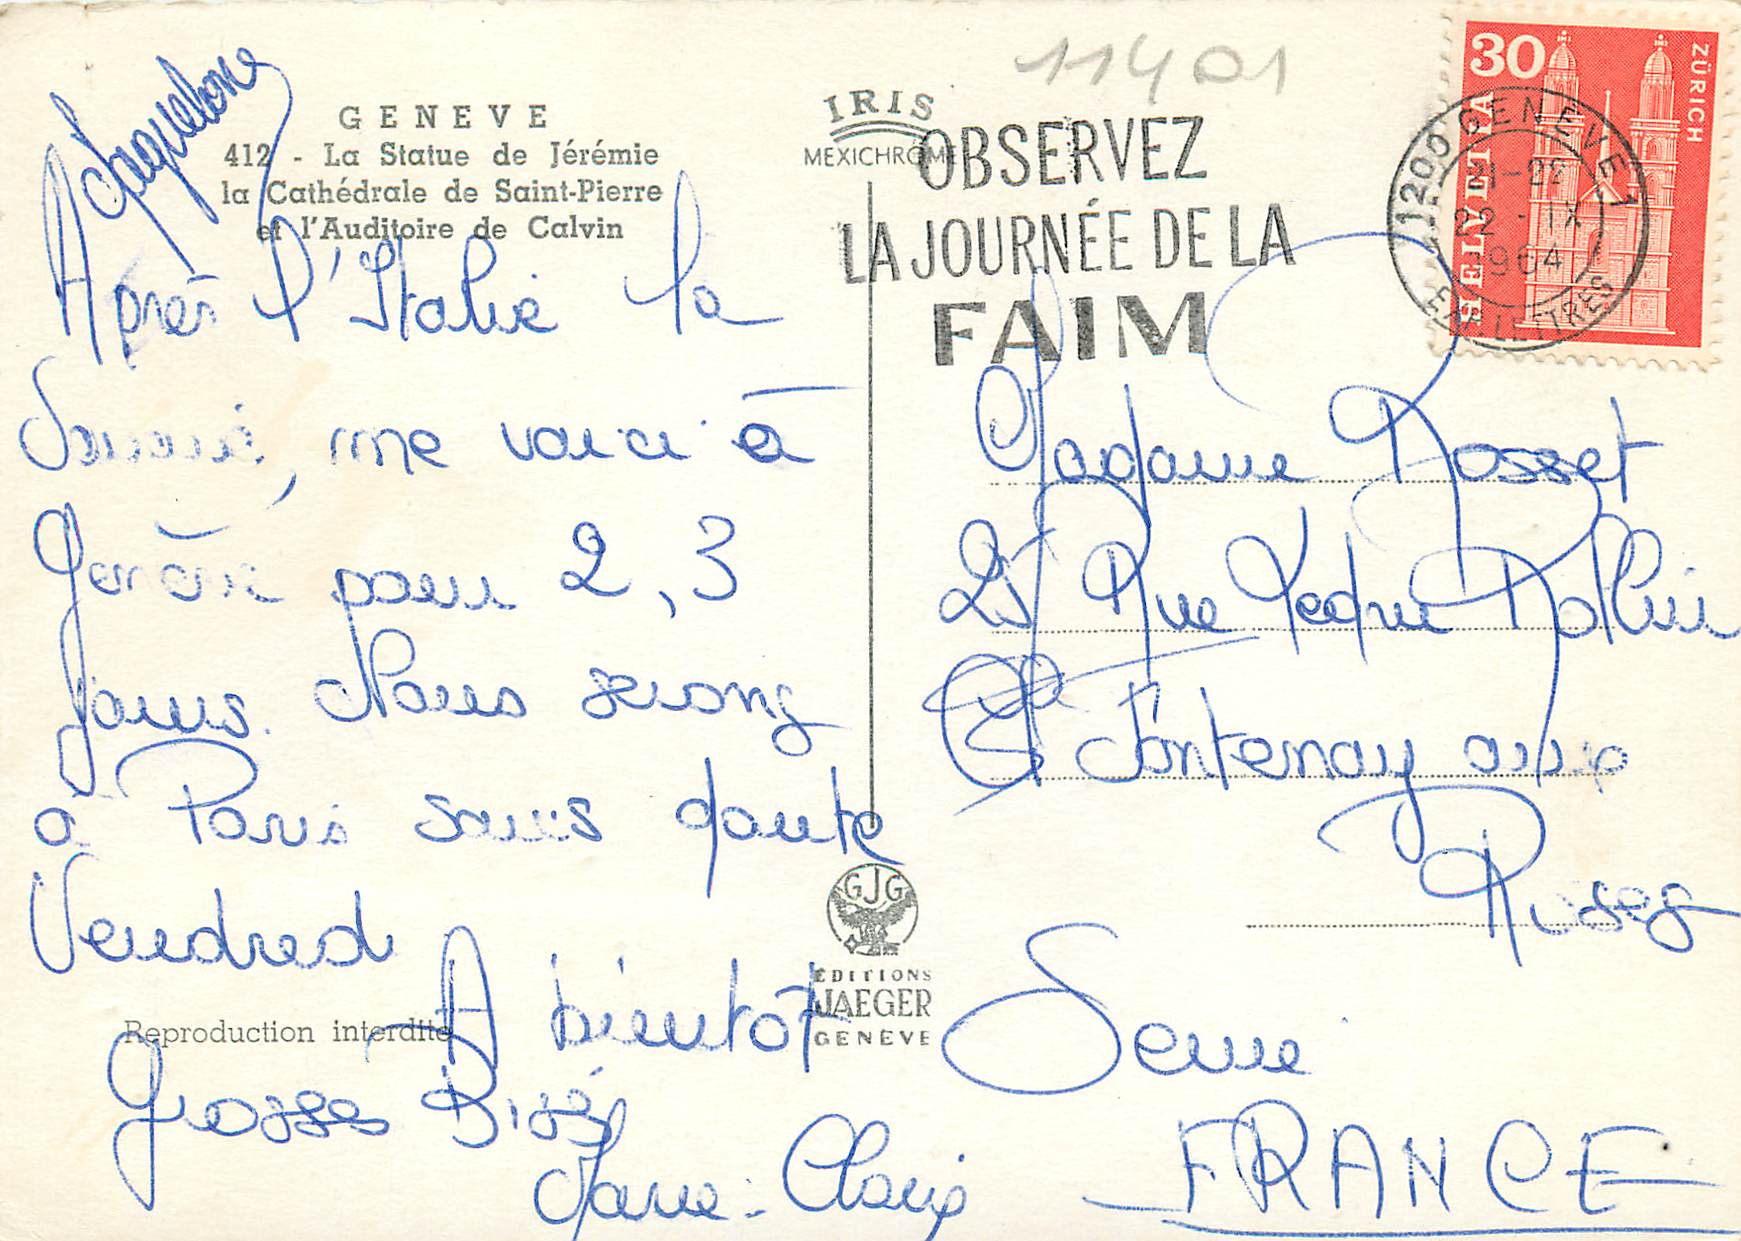 11401
GENEVE
412 - La Statue de Jérémie
la Cathédrale de Saint-Pierre
et l'Auditoire de Calvin
IRIS
MEXICHROME
OBSERVEZ
LA JOURNÉE DE LA
FAIM
30
ZÜRICH
HELVETIA
1200 GENÈVE 1
22-IX
1964
EXP. LETTRES
Jacqueline
Après l'Italie la
Savoie, me voici à
Genève pour 2, 3
jours. Nous serons
à Paris sans doute
Vendredi
A bientôt
Grosses Bises
Marie-Claire
Madame Rosset
25 Rue Ledru Rollin
Fontenay aux
Roses
Seine
FRANCE
GJG
ÉDITIONS
JAEGER
GENÈVE
Reproduction interdite